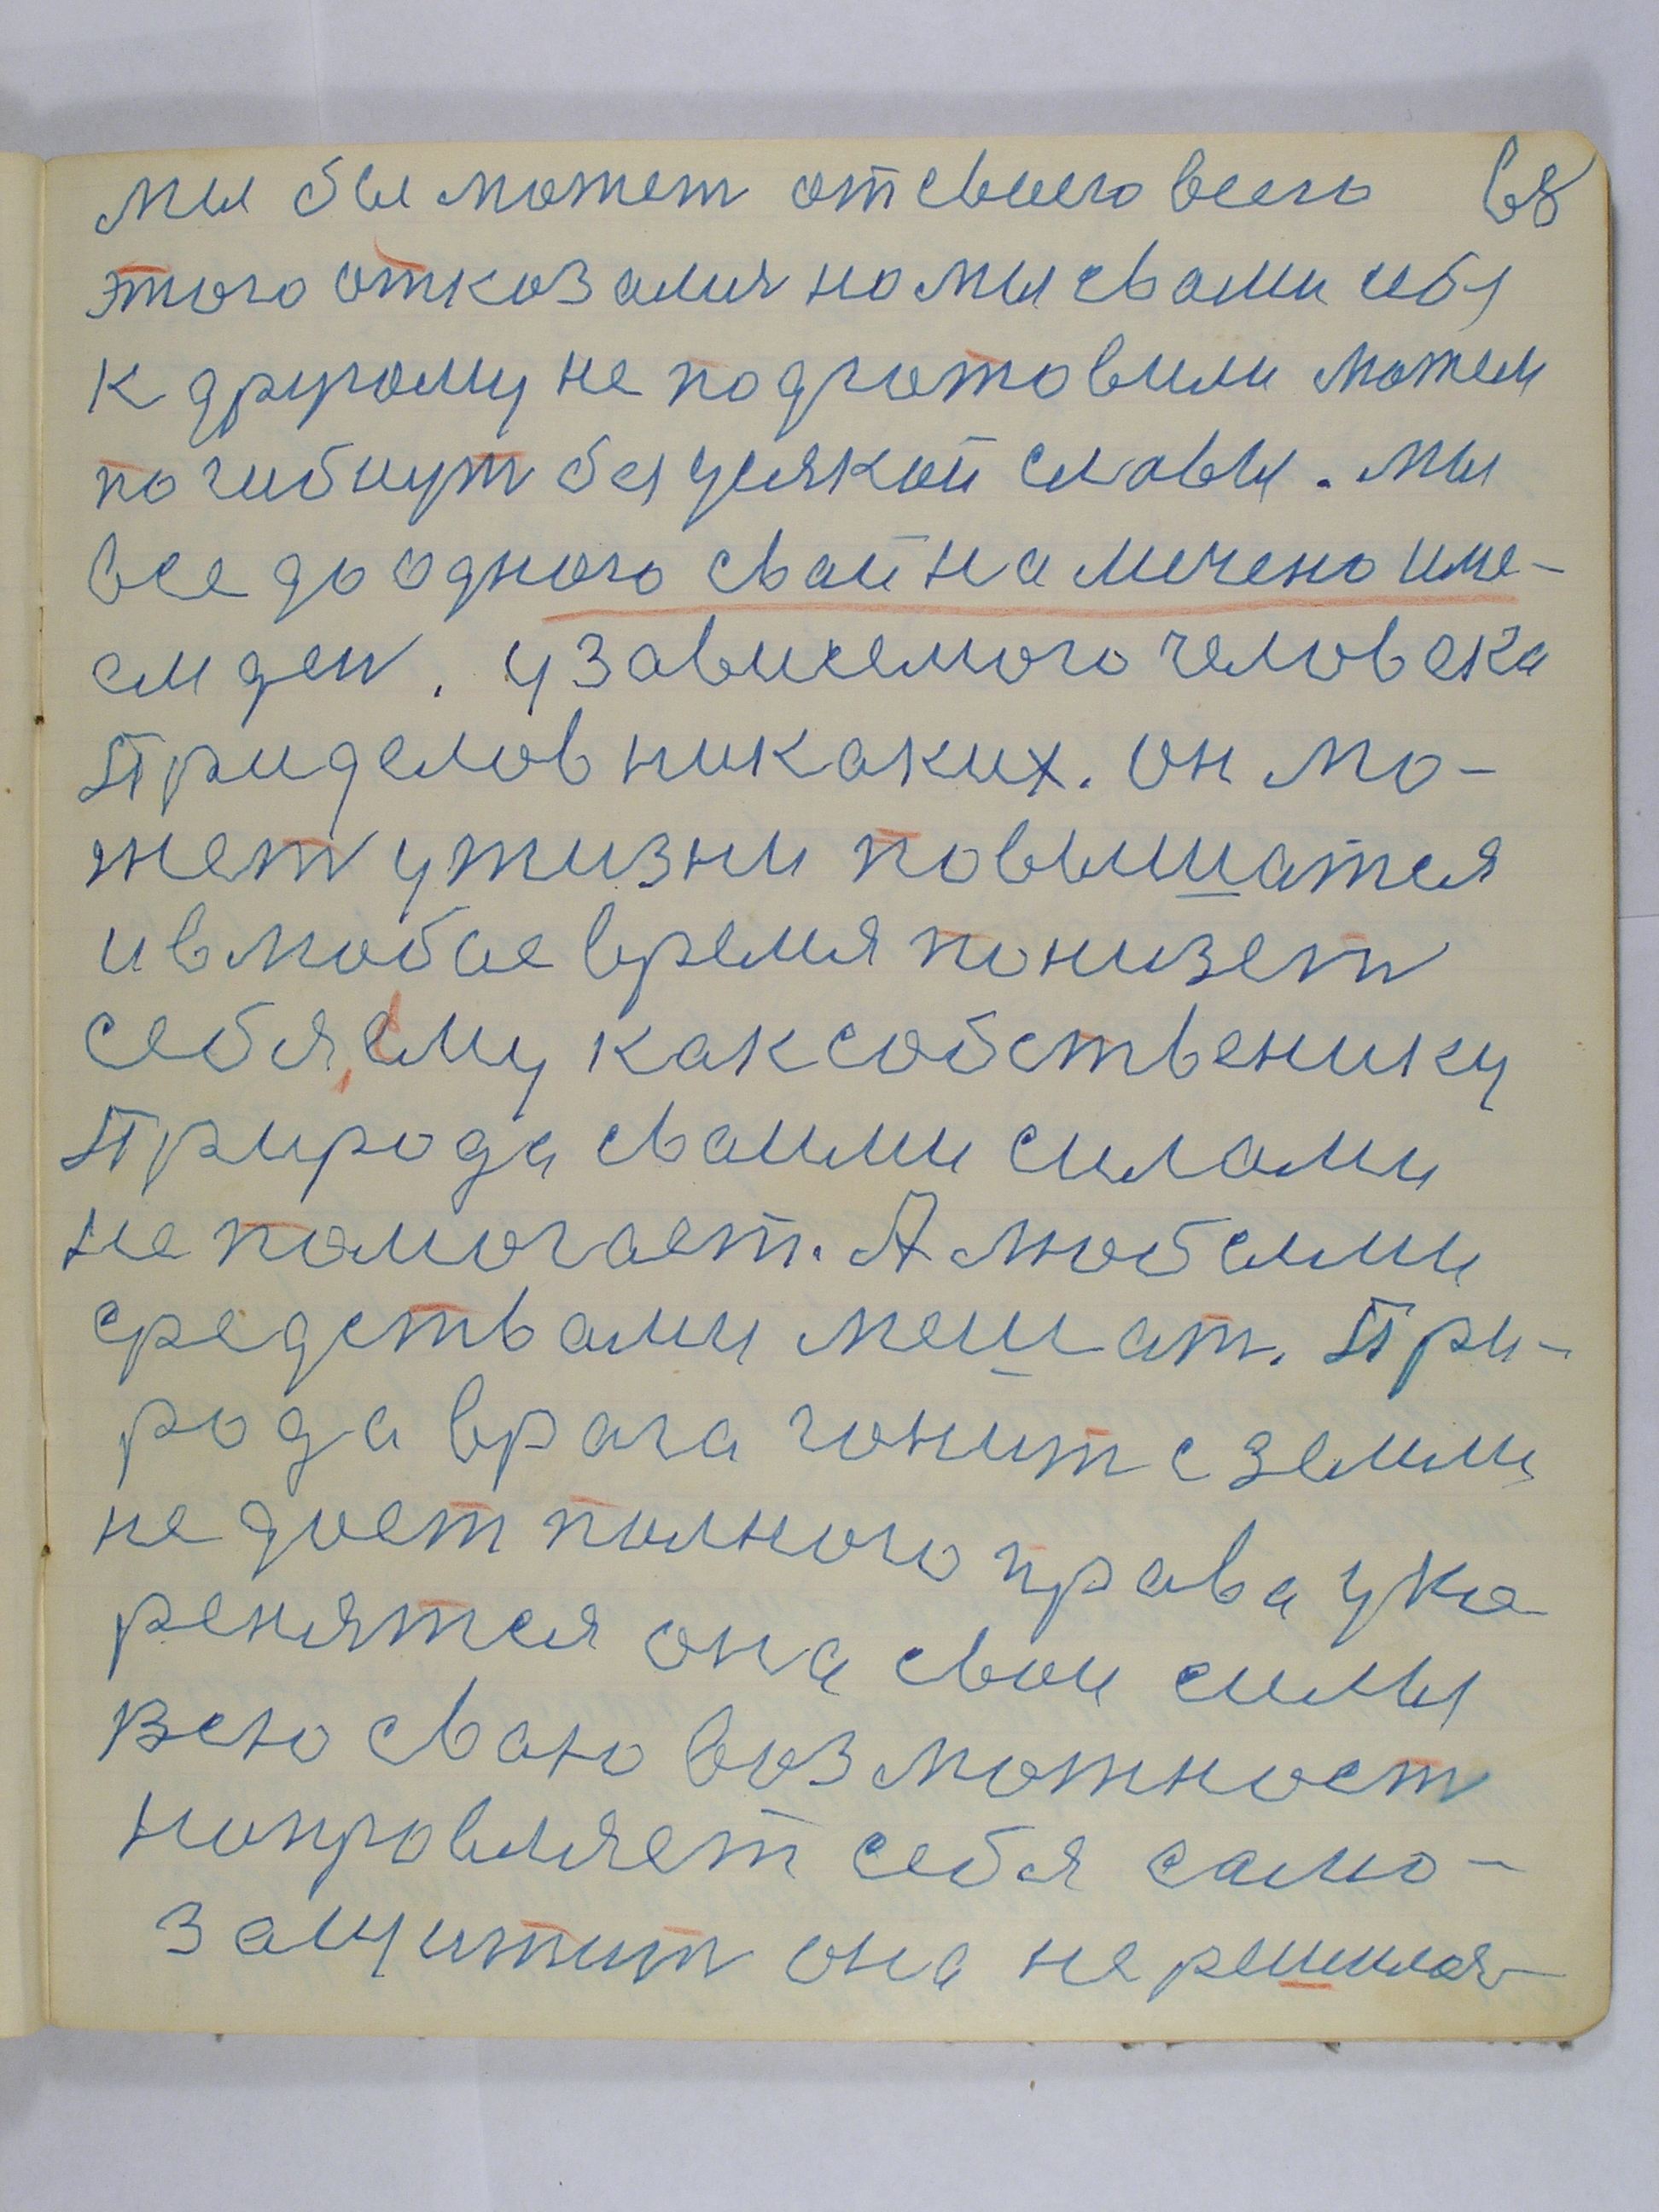 мы бы может отсвоего всего 68
этого отказалися но мы свами себя
к другому не подготовили можем
погибнут без усякой славы. мы
все до одного свай намечено име-
ем ден. у зависемого человека
Приделов никаких. он мо-
жет ужизни повышатся
и влюбое время понизет
себя, ему как собственику
Природа сваими силами
не помогает. А любеими
средствами мешат. При-
рода врага гонит с земли
не дает полного права уко
ренятся она свои силы
всю сваю возможност
направляет себя само-
защитит она не решилас-